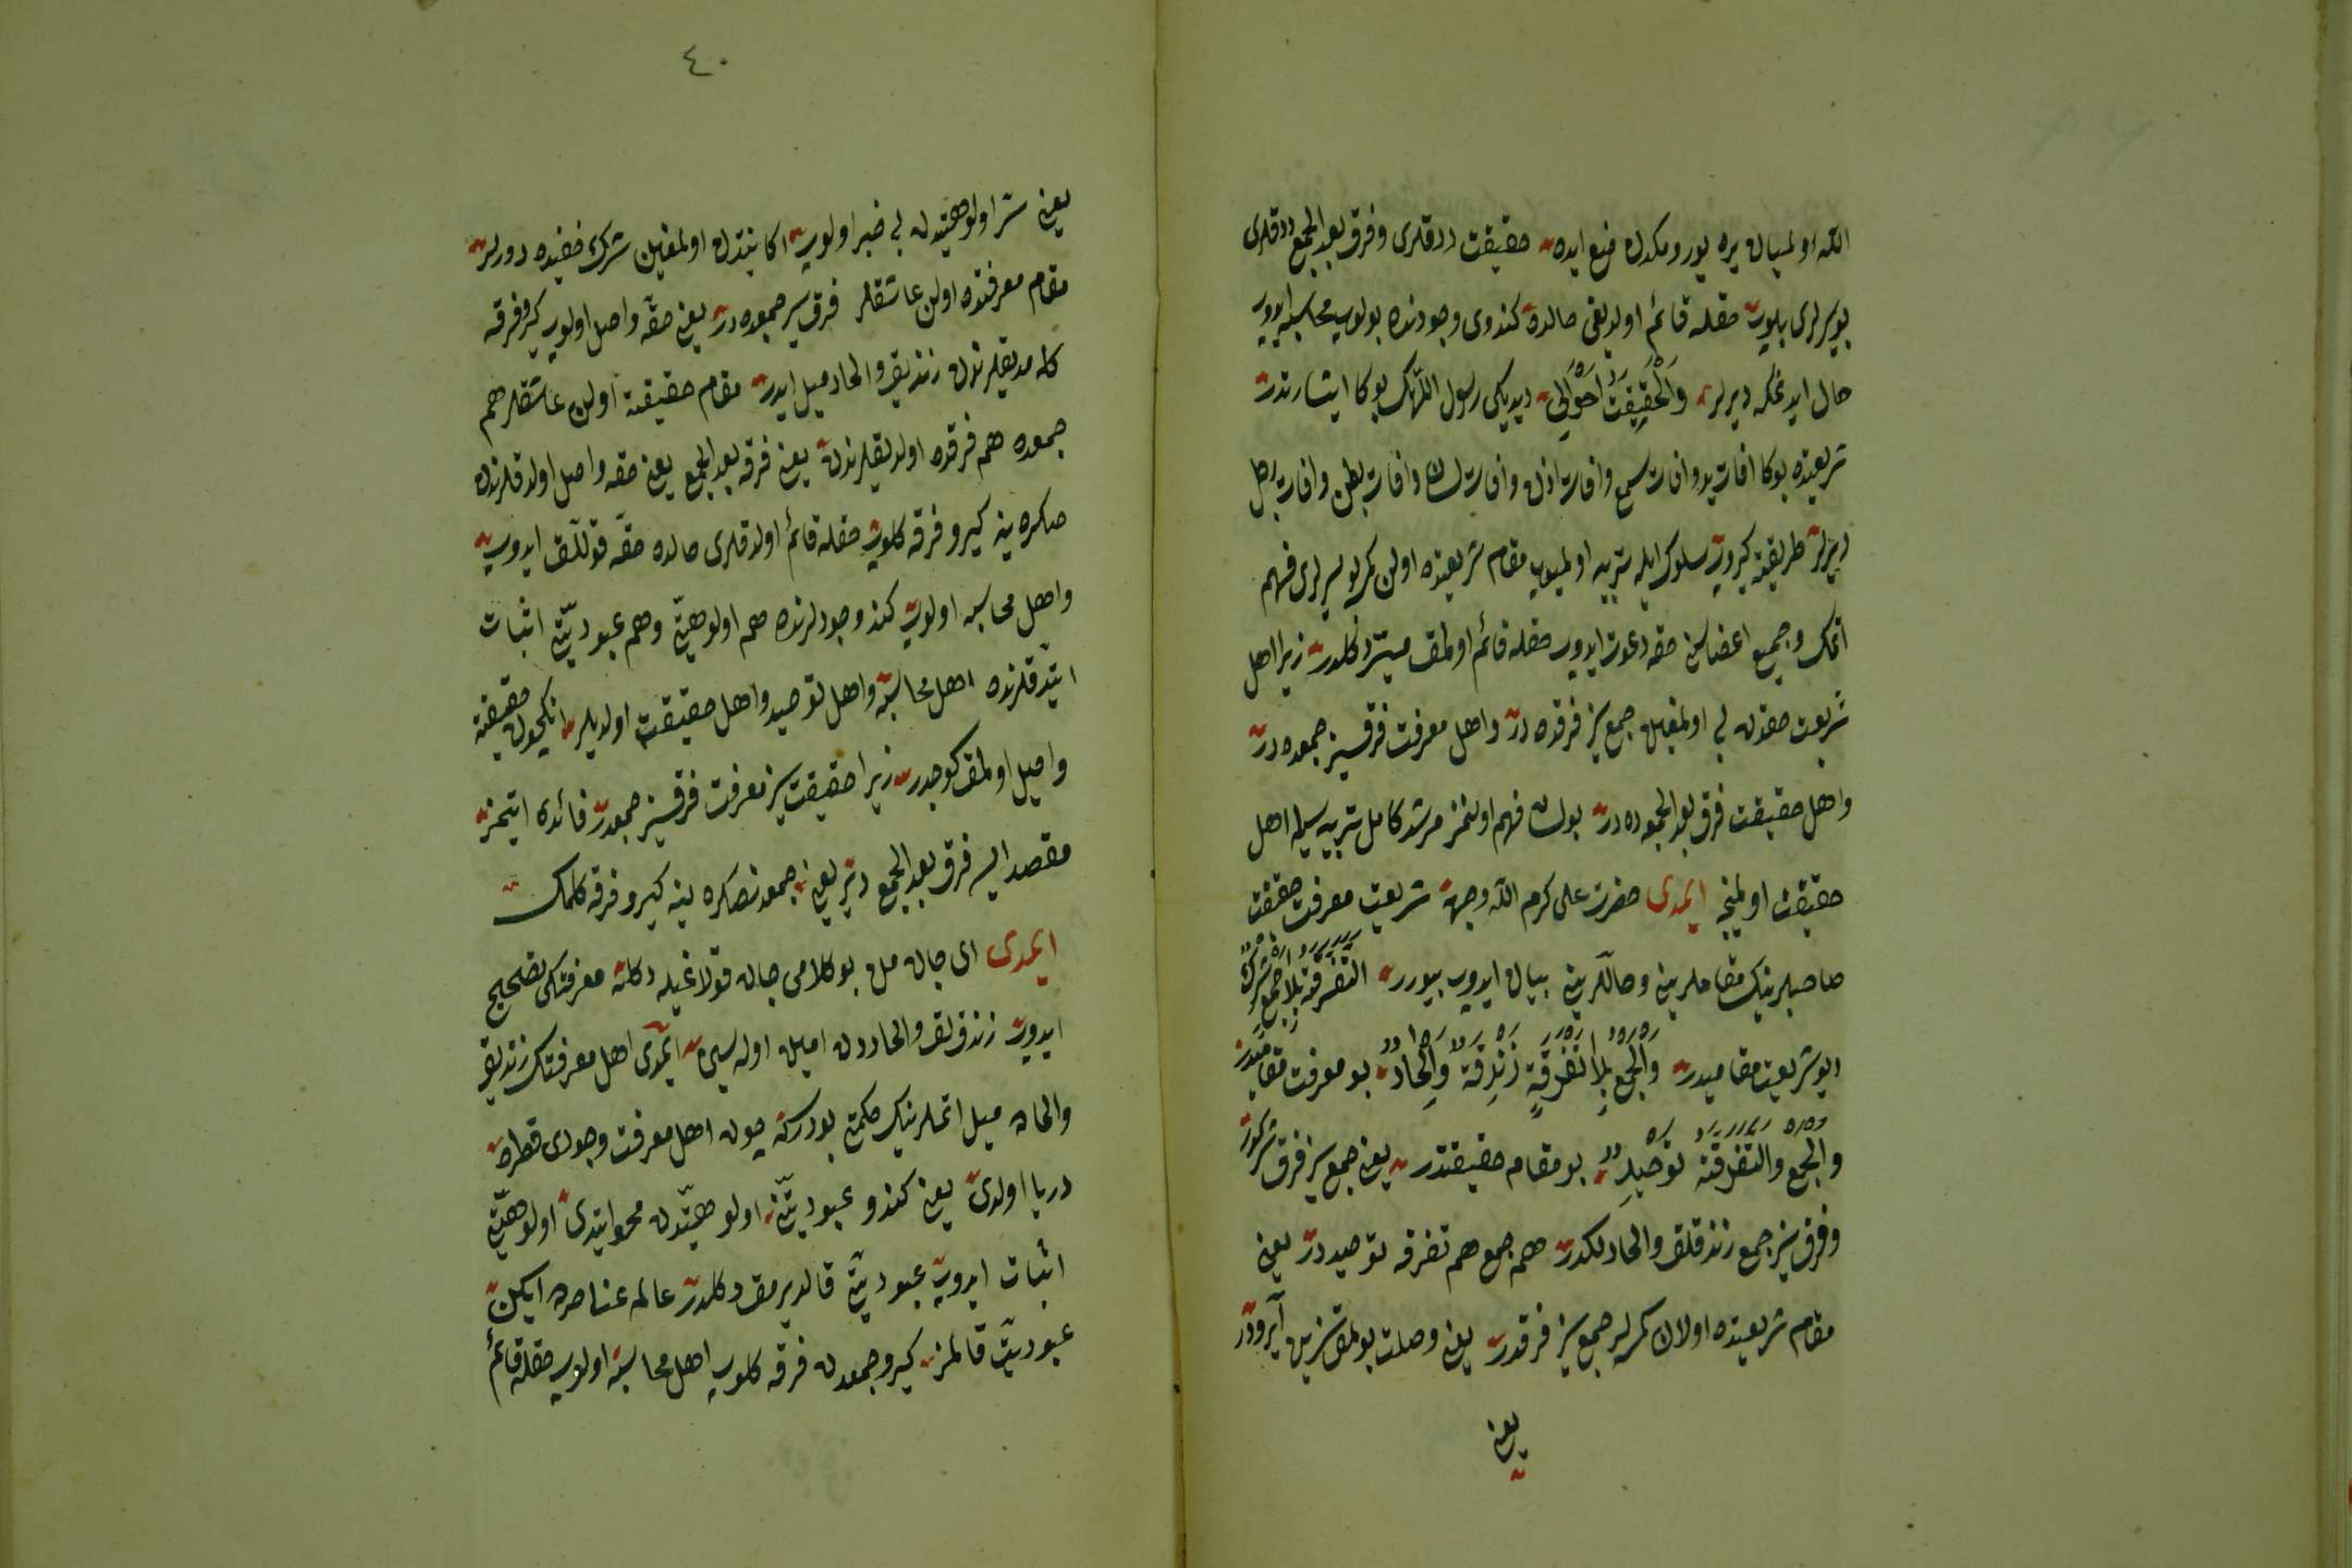 الله اولمیان یره یورومکدن منع ایده حقیقت ددقلری و فرق بعد الجمع ددقلری
بو سرلری بیلوب حقله قائم اولدیغی حالده کندوی وجودنده بولوب محاسبه ایدوب
حال ایدنمکه دیرلر وَالْحَقِيقَتُ اَحْوَالِي دیدیکی رسول اللهک بوکا اشارتدر
شریعتده بوکا افات ید و افات سمع و افات اذن و افات لسان و افات بطن و افات رجل
دیرلر طریقته کیروب سلوک ایله تربیه اولمیوب مقام شریعتده اولن کمسه بو سرلری فهم
اتمک و جمیع اعضاسن حقه دعوت ایدوب حقله قائم اولمق میسر دکلدر زیرا اهل
شریعت حقدن بی اولمغیله جمع سز فرقده در و اهل معرفت فرقسیز جمعده در
و اهل حقیقت فرق بعد الجمعده در بولسان فهم اولنمز مرشد کامل تربیه سیله اهل
حقیقت اولمینجه ایمدی حضرت علی کرم الله وجهه شریعت معرفت حقیقت
صاحبلرینک مقاملرین و حاللرین بیان ایدوب بیورر اَلتَّفْرِقَةُ بِلَا جَمْعٍ شِرْكٌ
دیو شریعت مقامیدر وَالْجَمْعُ بِلَا تَفْرِقَةٍ زَنْدَقَةٌ وَاِلْحَادٌ بو معرفت مقامیدر
وَالْجَمْعُ وَالتَّفْرِقَةُ تَوْحِيدٌ بو مقام حقیقتدر یعنی جمع سز فرق شرکدر
و فرق سز جمع زندقلق و الحادلکدر هم جمع هم تفرقه توحیددر یعنی
مقام شریعتده اولان کمسه لر جمع سز فرقدر یعنی وصلت بولمقسزین آیرودر
یعنی
٤٠
یعنی سر اولوهیتدن بی خبر اولوب اکا بتدن اولمغین شرک خفیده دورلر
مقام معرفتده اولن عاشقلر فرق سز جمعده در یعنی حقه واصل اولوب کیرو فرقه
کله مدیقلرندن زندیق و الحاد میل ایدر مقام حقیقته اولن عاشقلر هم
جمعده هم فرقده اولدیقلرندن یعنی فرقه بعد الجمع یعنی حقه واصل اولدقلرندن
صکره ینه کیرو فرقه کلوب حقله قائم اولدقلری حالده حقه قوللق ایدوب
و اهل محاسبه اولوب کندو وجودلرنده هم اولوهیت و هم عبودیت اثبات
ایتدقلرنده اهل محاسبه و اهل توحید و اهل حقیقت اولدیلر انکیچون حقیقته
واصل اولمق کوجدر زیرا حقیقت سز معرفت فرقسیز جمعدر فائده ایتمز
مقصد ایسه فرق بعد الجمع در یعنی جمعدنصکره ینه کیرو فرقه کلمک
ایمدی ای جان من بو کلامی جان قولاغیله دکله معرفتکی تصحیح
ایدوب زندقلق و الحاددن امین اوله سین ایمدی اهل معرفتک زندیق
و الحاده میل اتملرینک حکمتی بودرکه چون اهل معرفت وجودی قطره
دریا اولدی یعنی کندو عبودیتن اولوهیتدن محو ایتدی اولوهیت
اثبات ایدوب عبودیت قالدیرمق دکلدر عالم عناصرده ایکن
عبودیت قالمز کیرو جمعدن فرقه کلوب اهل محاسبه اولوب حقله قائم